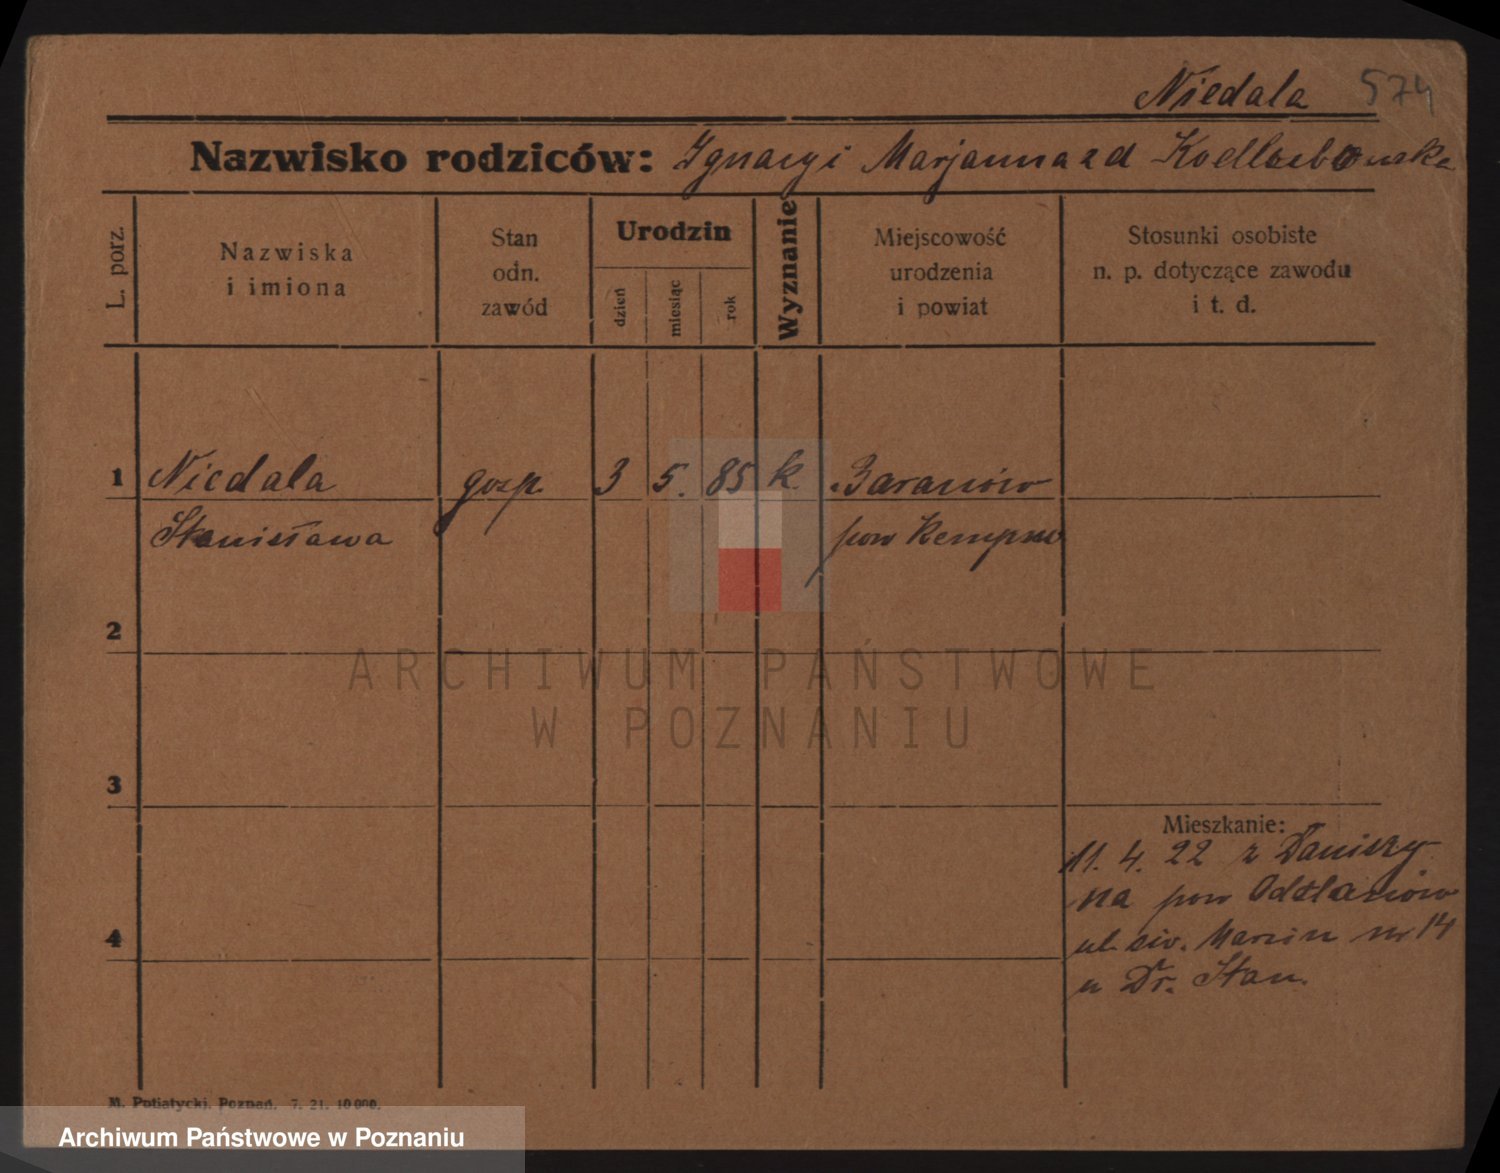 Niedala 574
Nazwisko rodziców: Ignacy i Marjanna zd
L. porz.
Nazwiska
i imiona
Stan
odn.
zawód
Urodzin
dzień
miesiąc
rok
Wyznanie
Miejscowość
urodzenia
i powiat
Stosunki osobiste
n. p. dotyczące zawodu
i t. d.
1 Niedala gosp. 3 5. 85 k. Baranów
Stanisława pow Kempno
2
3
Mieszkanie:
11. 4. 22 z Daniszy
na pow Odolanów
4
ul. św. Marcin nr 14
u Dr. Stan.
M. Putiatycki, Poznań. 7. 21. 10 000.
ARCHIWUM PAŃSTWOWE
W POZNANIU
Archiwum Państwowe w Poznaniu